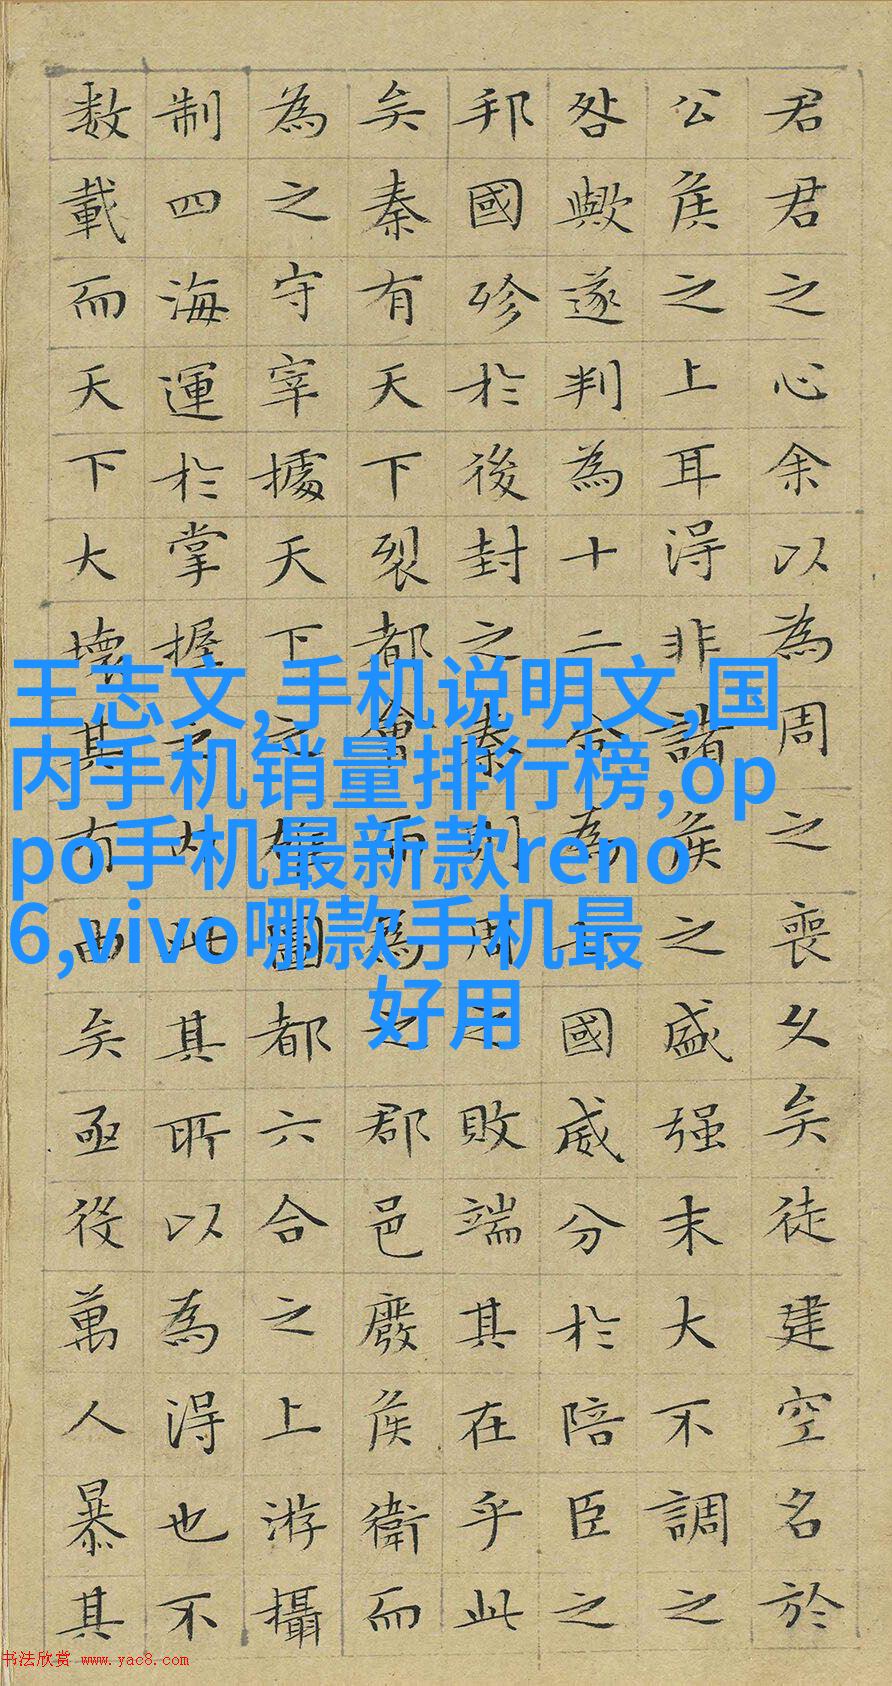 君君之心余以為周之喪久矣徒建空名於
公侯之上耳得非諸侯之盛强末大不調之
咎歟遂判為十二合為七國威分於陪臣之
邦國殄於後封之秦則周之敗端其在乎此
矣秦有天下裂都會而為之郡邑廢侯衛而
為之守宰據天下之雄圖都六合之上游攝
制四海運於掌握之內此其所以為得也不
数載而天下大壞其有由矣亟役萬人暴其
王志文,手机说明文,国
内手机销量排行榜,op
po手机最新款reno
6,vivo哪款手机最
好用
书法欣赏 www.yac8.com